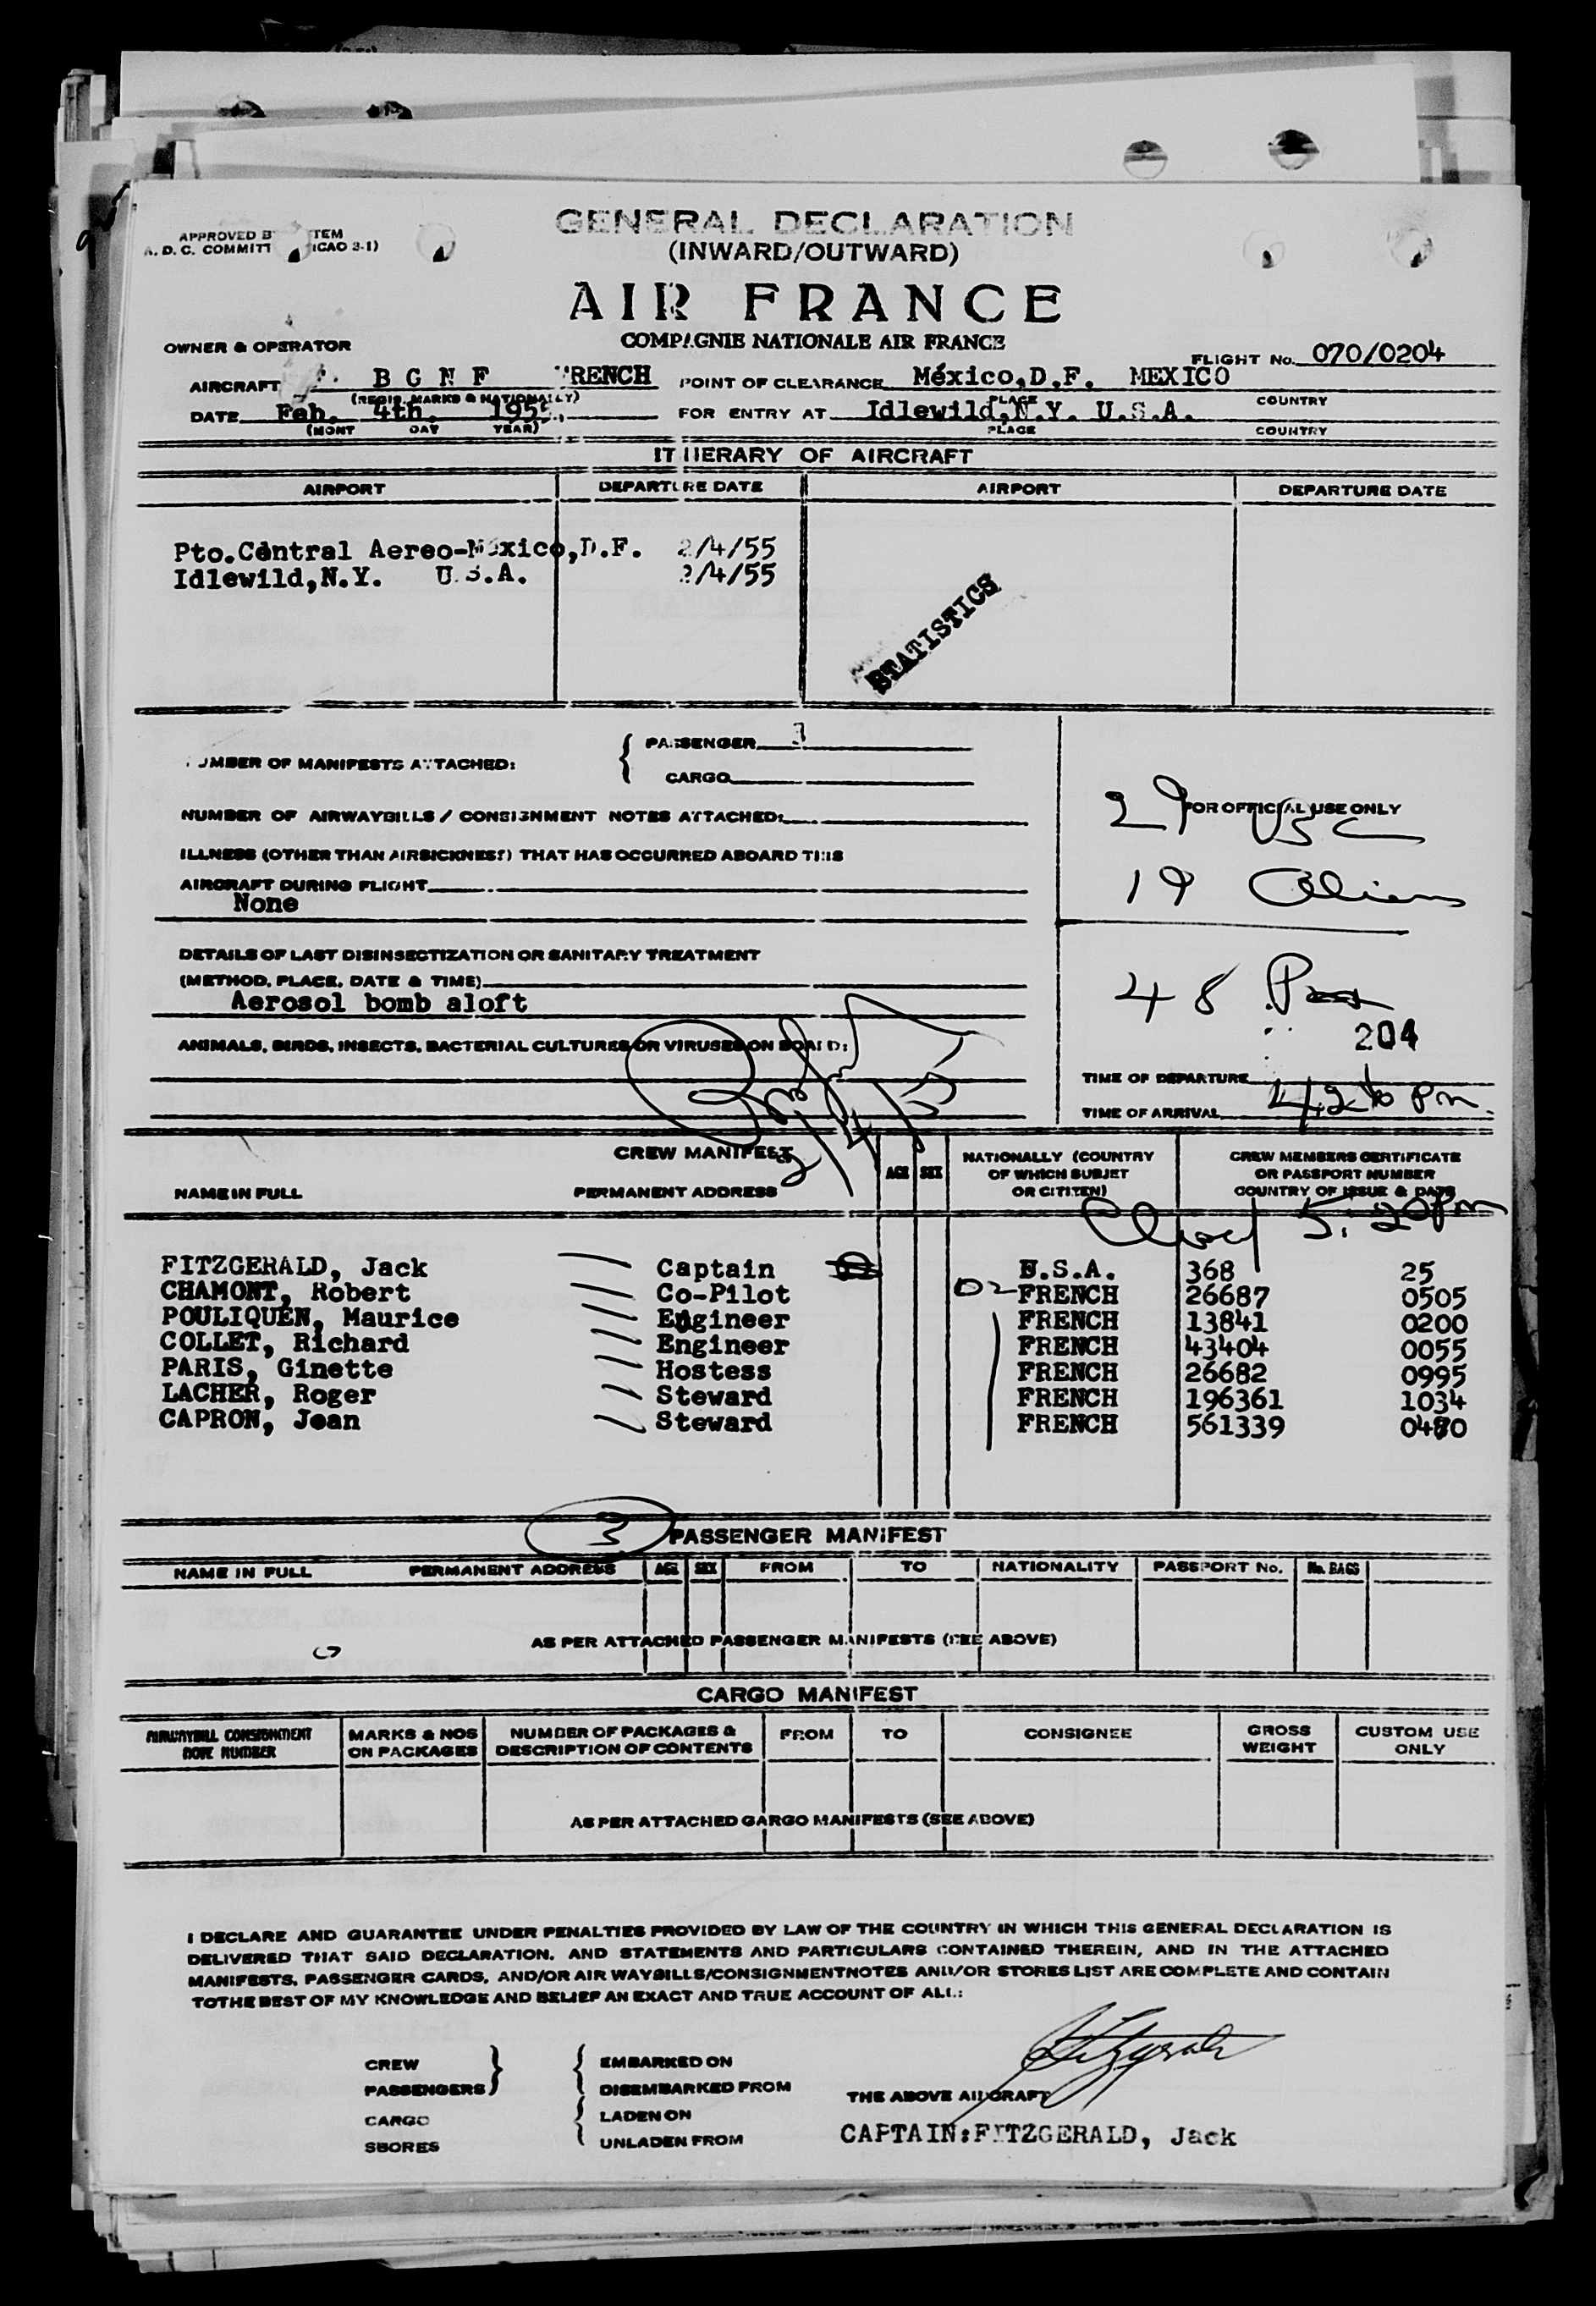 GENERAL DECLARATION
(INWARD/OUTWARD)
APPROVED B TEM
A. D. C. COMMITT (ICAO 3-1)
AIR FRANCE
COMPAGNIE NATIONALE AIR FRANCE
OWNER & OPERATOR
FLIGHT No. 070/0204
AIRCRAFT F. B G N F FRENCH POINT OF CLEARANCE México,D.F. MEXICO
(REGIS. MARKS & NATIONALLY) PLACE COUNTRY
DATE Feb. 4th. 1955. FOR ENTRY AT Idlewild,N.Y. U.S.A.
(MONT DAY YEAR) PLACE COUNTRY
ITINERARY OF AIRCRAFT
AIRPORT DEPARTURE DATE AIRPORT DEPARTURE DATE
Pto.Central Aereo-México,D.F. 2/4/55
Idlewild,N.Y. U.S.A. 2/4/55
STATISTICS
NUMBER OF MANIFESTS ATTACHED: PASSENGER 3
CARGO
NUMBER OF AIRWAYBILLS / CONSIGNMENT NOTES ATTACHED:
FOR OFFICIAL USE ONLY
29 USC
ILLNESS (OTHER THAN AIRSICKNESS) THAT HAS OCCURRED ABOARD THIS
AIRCRAFT DURING FLIGHT
None
19 Aliens
DETAILS OF LAST DISINSECTIZATION OR SANITARY TREATMENT
(METHOD, PLACE, DATE & TIME)
Aerosol bomb aloft
48 Pass
204
ANIMALS, BIRDS, INSECTS, BACTERIAL CULTURES OR VIRUSES ON BOARD:
TIME OF DEPARTURE
TIME OF ARRIVAL pm
CREW MANIFEST
NAME IN FULL PERMANENT ADDRESS AGE SEX NATIONALLY (COUNTRY OF WHICH SUBJET OR CITIZEN) CREW MEMBERS CERTIFICATE OR PASSPORT NUMBER COUNTRY OF ISSUE & DATE
5:20pm
FITZGERALD, Jack Captain U.S.A. 368 25
CHAMONT, Robert Co-Pilot D2 FRENCH 26687 0505
POULIQUEN, Maurice Engineer FRENCH 13841 0200
COLLET, Richard Engineer FRENCH 43404 0055
PARIS, Ginette Hostess FRENCH 26682 0995
LACHER, Roger Steward FRENCH 196361 1034
CAPRON, Jean Steward FRENCH 561339 0480
3 PASSENGER MANIFEST
NAME IN FULL PERMANENT ADDRESS AGE SEX FROM TO NATIONALITY PASSPORT No. No. BAGS
AS PER ATTACHED PASSENGER MANIFESTS (SEE ABOVE)
CARGO MANIFEST
AIRWAYBILL CONSIGNMENT NOTE NUMBER MARKS & NOS ON PACKAGES NUMBER OF PACKAGES & DESCRIPTION OF CONTENTS FROM TO CONSIGNEE GROSS WEIGHT CUSTOM USE ONLY
AS PER ATTACHED CARGO MANIFESTS (SEE ABOVE)
I DECLARE AND GUARANTEE UNDER PENALTIES PROVIDED BY LAW OF THE COUNTRY IN WHICH THIS GENERAL DECLARATION IS
DELIVERED THAT SAID DECLARATION, AND STATEMENTS AND PARTICULARS CONTAINED THEREIN, AND IN THE ATTACHED
MANIFESTS, PASSENGER CARDS, AND/OR AIR WAYBILLS/CONSIGNMENTNOTES AND/OR STORES LIST ARE COMPLETE AND CONTAIN
TOTHE BEST OF MY KNOWLEDGE AND BELIEF AN EXACT AND TRUE ACCOUNT OF ALL:
Fitzgerald
CREW EMBARKED ON
PASSENGERS DISEMBARKED FROM THE ABOVE AIRCRAFT
CARGO LADEN ON
SBORES UNLADEN FROM
CAPTAIN:FITZGERALD, Jack